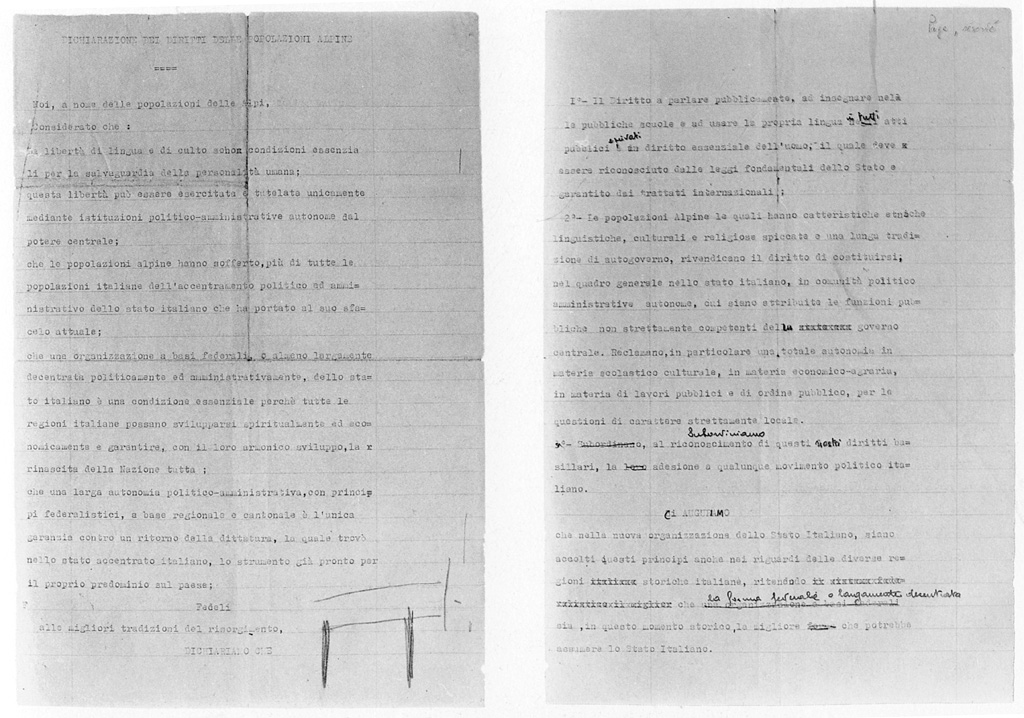 DICHIARAZIONE DEI DIRITTI DELLE POPOLAZIONI ALPINE
====
Noi, a nome delle popolazioni delle Alpi,
Considerato che :
la libertà di lingua e di culto sono condizioni essenzia
li per la salvaguardia della personalità umana;
questa libertà può essere esercitata e tutelata unicamente
mediante istituzioni politico-amministrative autonome dal
potere centrale;
che le popolazioni alpine hanno sofferto,più di tutte le
popolazioni italiane dell'accentramento politico ed ammi=
nistrativo dello stato italiano che ha portato al suo sfa=
celo attuale;
che una organizzazione a basi federali, o almeno largamente
decentrata politicamente ed amministrativamente, dello sta=
to italiano è una condizione essenziale perchè tutte le
regioni italiane possano svilupparsi spiritualmente ed eco=
nomicamente e garantire, con il loro armonico sviluppo,la x
rinascita della Nazione tutta ;
che una larga autonomia politico-amministrativa,con princip
pi federalistici, a base regionale e cantonale è l'unica
garanzia contro un ritorno della dittatura, la quale trovò
nello stato accentrato italiano, lo strumento già pronto per
il proprio predominio sul paese;
Fedeli
alle migliori tradizioni del risorgimento,
DICHIARIAMO CHE
I°- Il Diritto a parlare pubblicamente, ad insegnare nelà
le pubbliche scuole e ad usare la propria lingua in tutti atti
pubblici e privati diritto essenziale dell'uomo, il quale deve x
essere riconosciuto dalle leggi fondamentali dello Stato e
garantito dai trattati internazionali ;
2°- Le popolazioni Alpine le quali hanno catteristiche etniche
linguistiche, culturali e religiose spiccate e una lunga tradi=
zione di autogoverno, rivendicano il diritto di costituirsi;
nel quadro generale nello stato italiano, in comunità politico
amministrative autonome, cui siano attribuite le funzioni pub=
bliche non strettamente competenti della xxxxxxxxx governo
centrale. Reclamano,in particolare una totale autonomia in
materia scolastico culturale, in materia economico-agraria,
in materia di lavori pubblici e di ordine pubblico, per le
questioni di carattere strettamente locale.
Subordiniamo
3°- Subordinano, al riconoscimento di questi nostri diritti ba=
sillari, la loro adesione a qualunque movimento politico ita=
liano.
Ci AUGURIAMO
che nella nuova organizzazione dello Stato Italiano, siano
accolti questi principi anche nei riguardi delle diverse re=
gioni storiche italiane, ritendodo
la forma federale o largamente decentrata
che una organizzazione a basi federali
sia ,in questo momento storico,la migliore forma che potrebbe
assumere lo Stato Italiano.